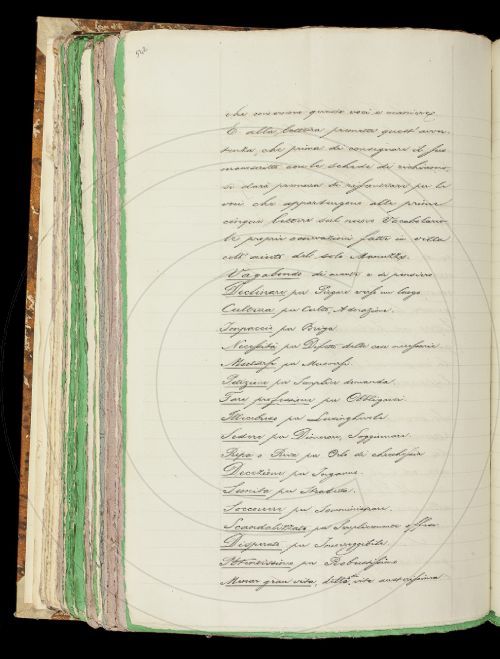 che con essere queste voci e maniere.
E alla lettura premette quest'avver-
tenza, che prima di consegnare il suo
manoscritto con le schede di richiamo
si darà premura di per le
voci che appartengono alle prime
cinque lettere sul nuovo Vocabolario
le proprie osservazioni fatte in
del solo Manuzzi.
Vagabondo di mente e di pensiero
Declinare per Piegare verso un luogo
Cultura per Culto, Adorazione.
Impaccio per Briga
Necessità per Difetto delle cose necessarie
per
Petizione per Semplice domanda.
Fare professione per Obbligarsi
per Lusinghevole
Sedere per Dimorare, Soggiornare.
Ripa o Riva per Orlo di
Decezione per Inganno.
Semita per Strada.
Soccorrere per Somministrare.
Scandalizzato per Semplicemente offeso
Disperato per Incorreggibile
Potentissimo per Robustissimo
Menar gran vita, detto di vita austerissima